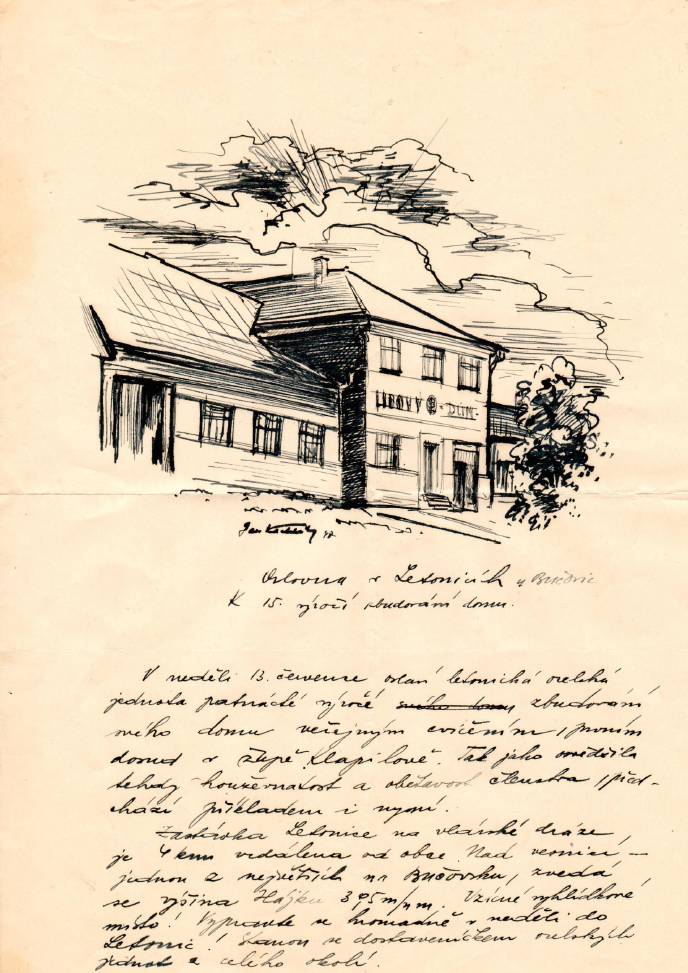 LIDOVÝ DŮM
Jan 47
Orlovna v Letonicích u Bučovic
K 15. výročí zbudování domu.
V neděli 13. července oslaví letonická orelská
jednota patnácté výročí svého domu zbudování
svého domu veřejným cvičením, prvním
v župě Klapilově. Tak jako osvědčila
tehdy houževnatost a obětavost členstva, před-
chází příkladem i nyní.
Zastávka Letonice na vlárské dráze,
je 4 km vzdálena od obce. Nad vesnicí –
jednou z největších na Bučovsku, zvedá
se výšina Hájku 395 m/nm. Vzácné vyhlídkové
místo! Vypravte se hromadně v neděli do
Letonic! Stanou se dostaveníčkem orelských
jednot z celého okolí.